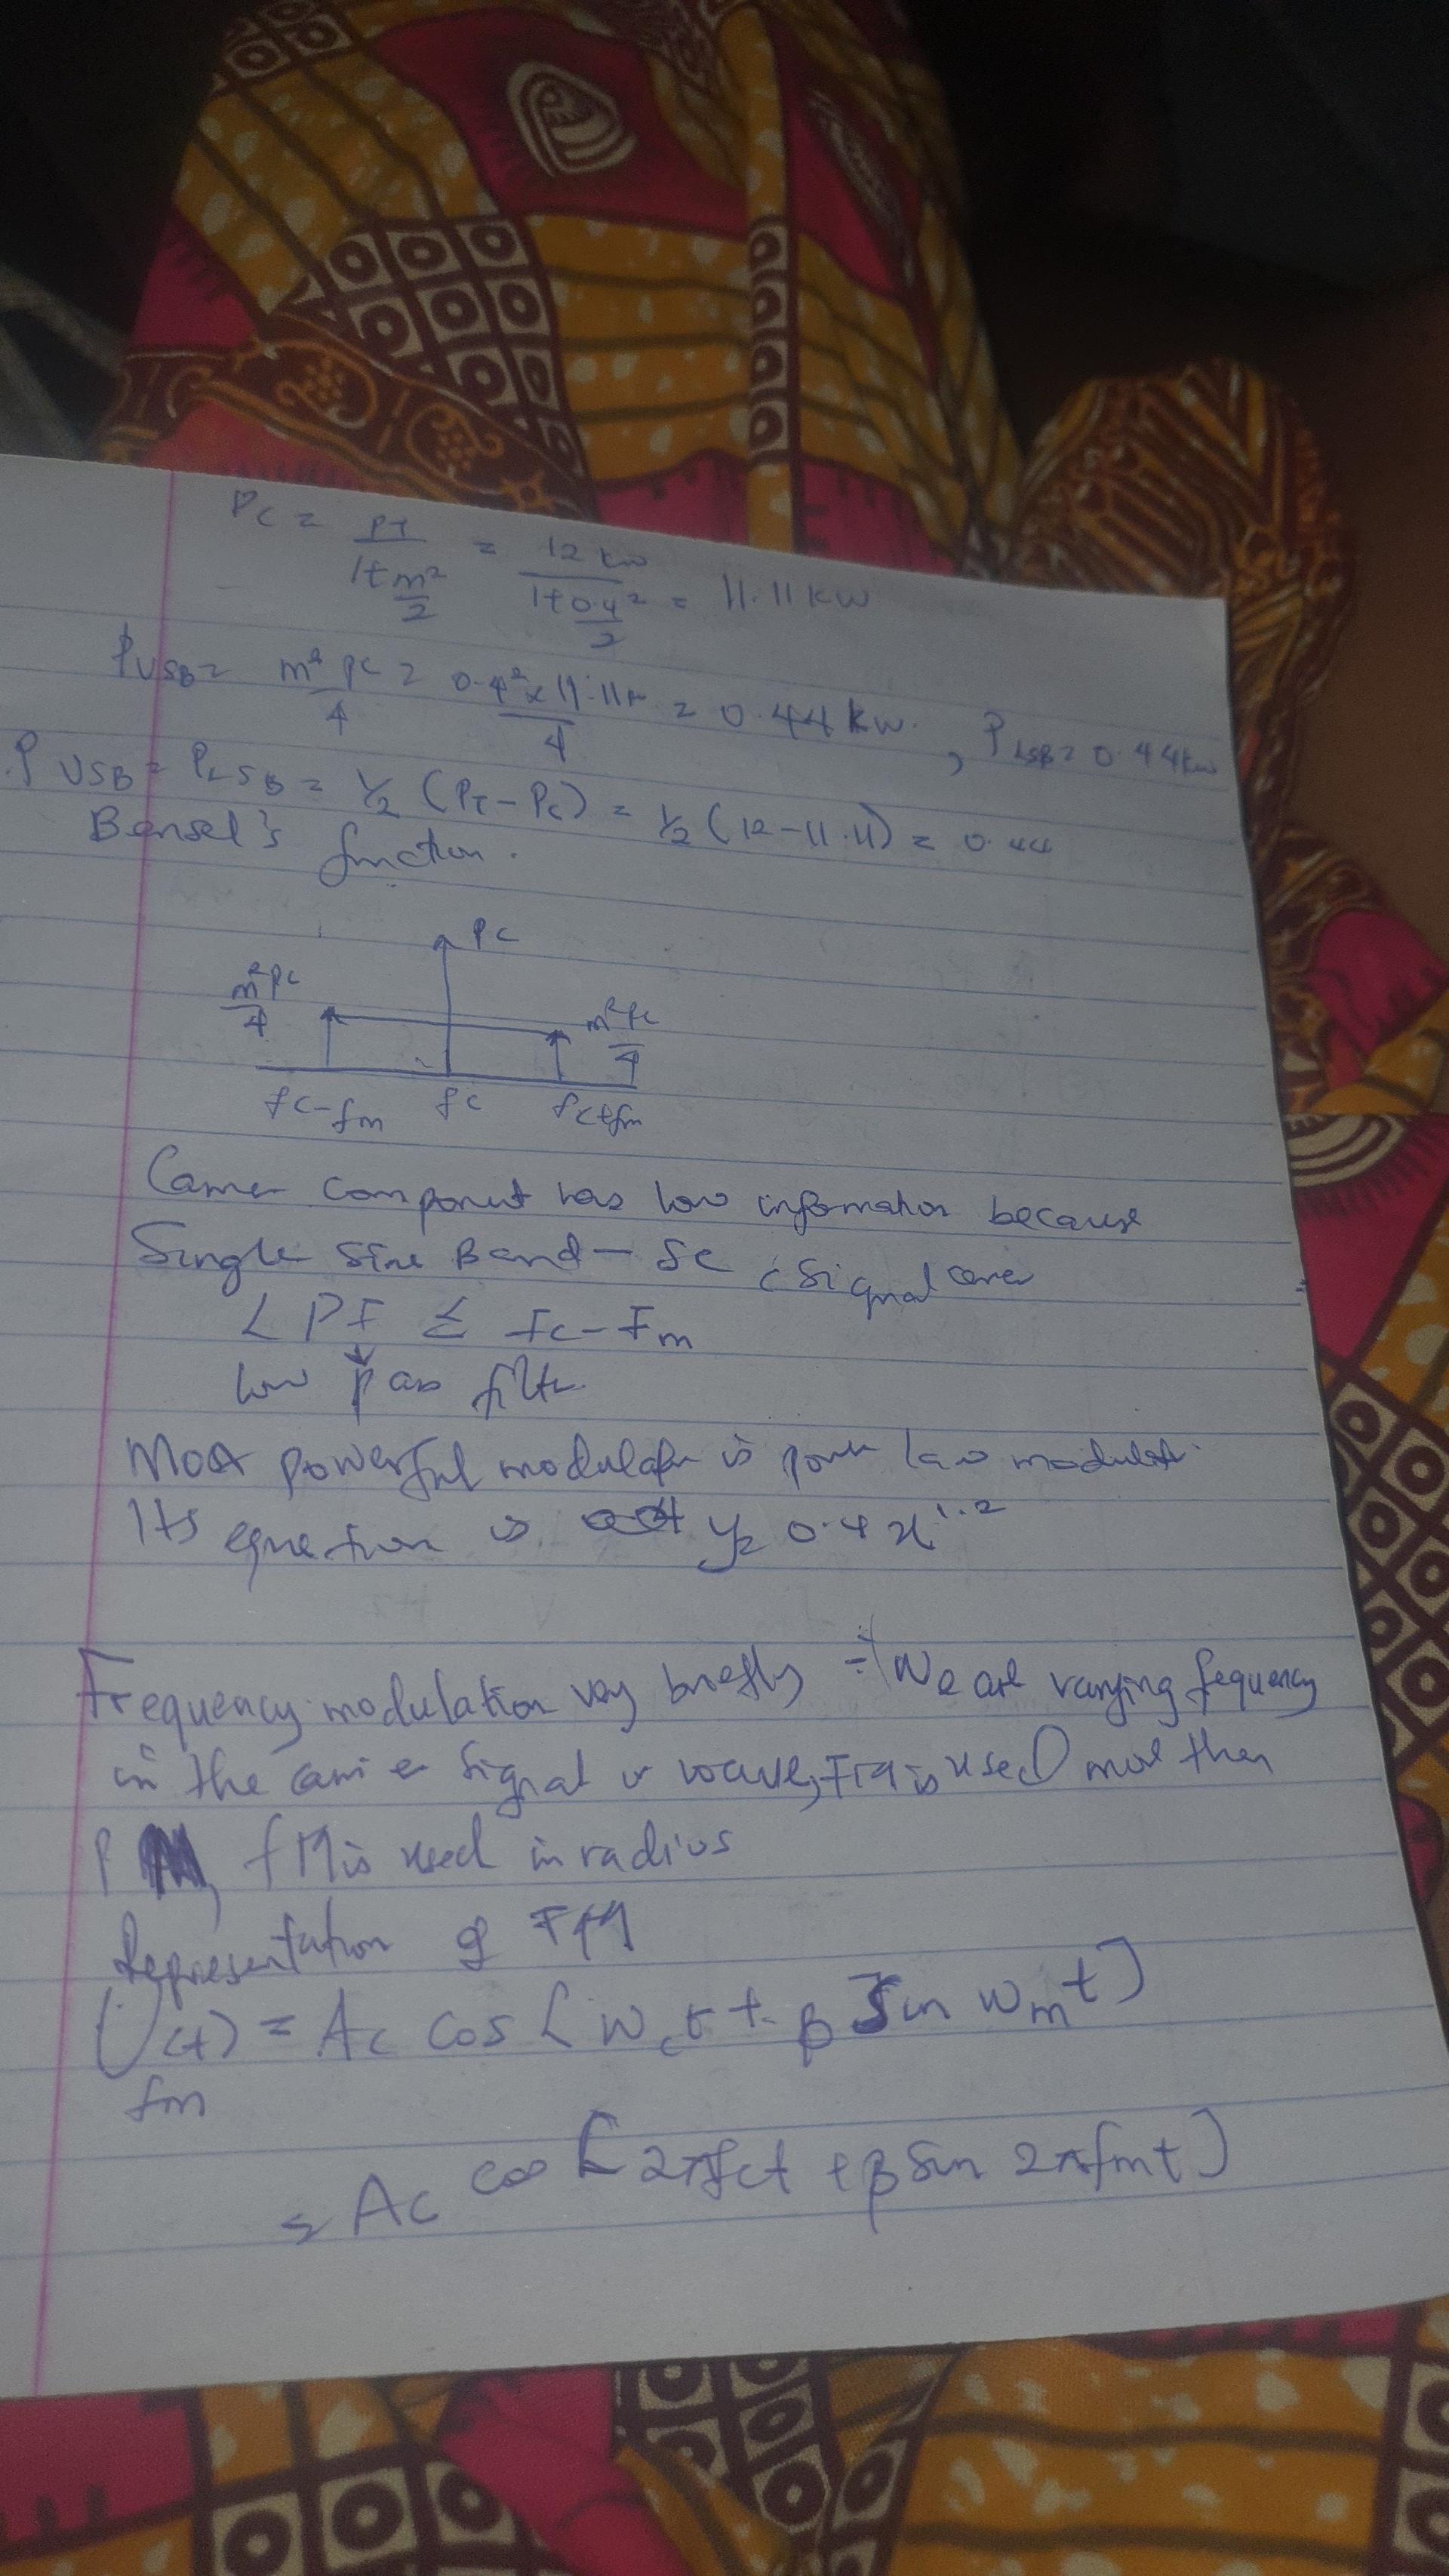 Pc = PT / 1+m²/2 = 12 kw / 1+0.4²/2 = 11.11 kw
PUSB = m² Pc / 4 = 0.4² x 11.11 / 4 = 0.44 kw. , PLSB = 0.44kw
PUSB = PLSB = 1/2 (PT - PC) = 1/2 (12 - 11.11) = 0.44
Bensel's function.
Pc
m²Pc / 4
m²Pc / 4
fc-fm fc fc+fm
Carrier component has low information because
Single Side Band - SC (Signal carrier
LPF ≤ Fc-Fm
low pass filter
Most powerful modulator is power law modulator
Its equation is y = 0.4x^1.2
Frequency modulation very briefly :- We are varying fequency
in the carrier Signal or wave, FM is used more than
PM, fM is used in radios
Representation of FM
U(t)fm = Ac cos [Wct + β Sin Wmt]
= Ac cos [2πfct + β Sin 2πfmt]